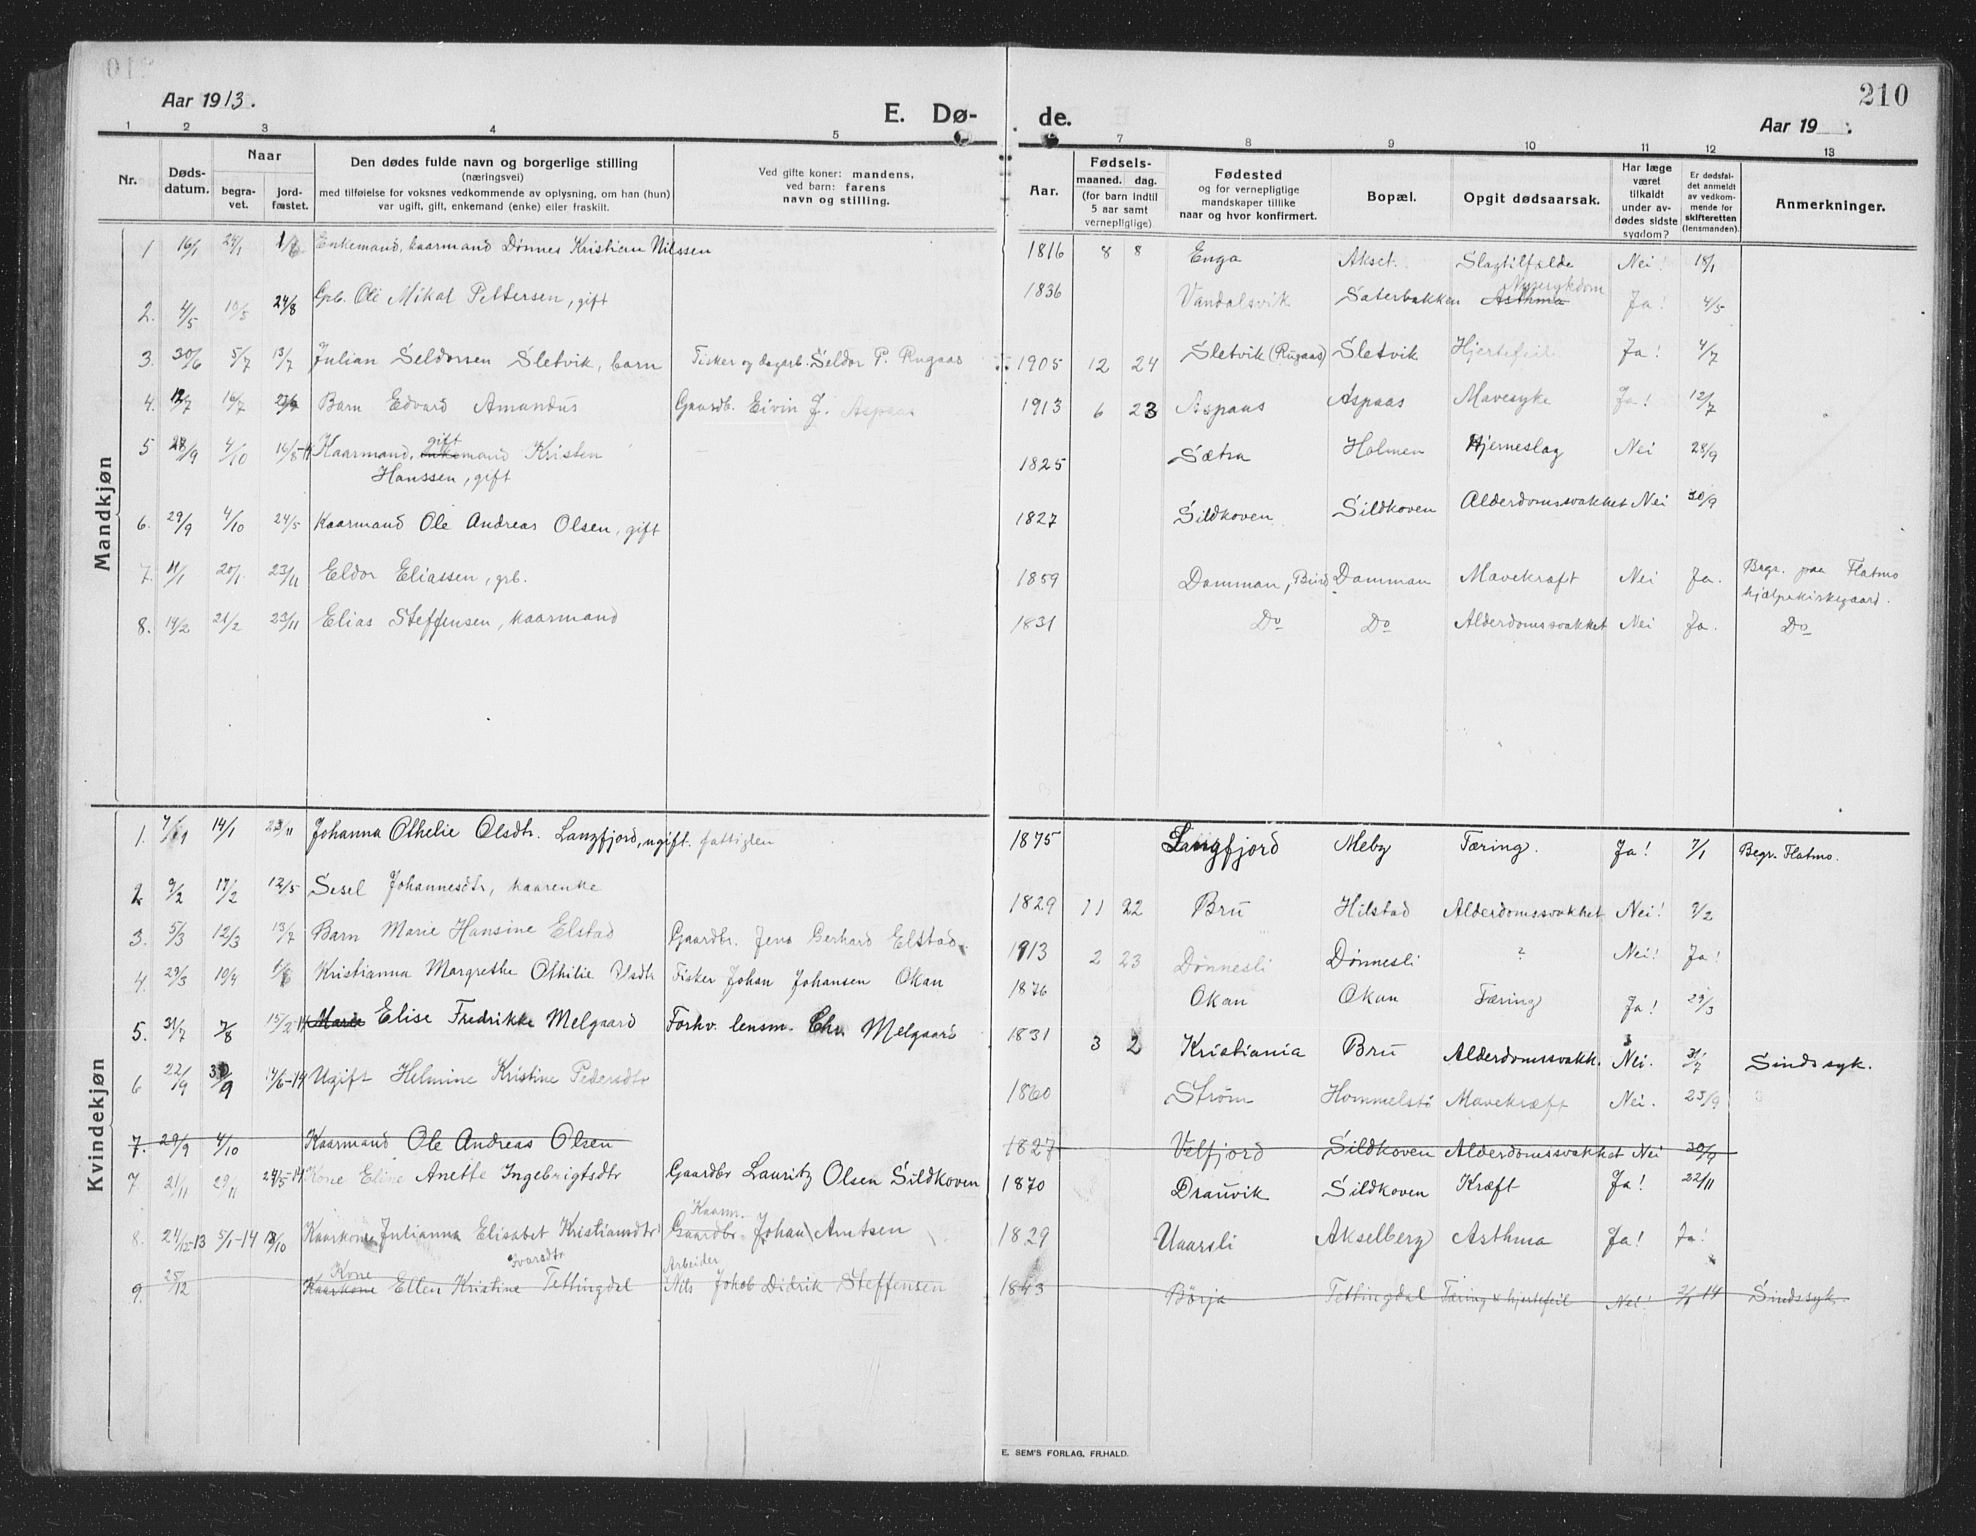 210
Aar 1913.
E. Dø- de.
Aar 19 .
1 2 3 4 5 7 8 9 10 11 12 13
Nr.
Døds-
datum.
Naar
begra-
vet.
jord-
fæstet.
Den dødes fulde navn og borgerlige stilling
(næringsvei)
med tilføielse for voksnes vedkommende av oplysning, om han (hun)
var ugift, gift, enkemand (enke) eller fraskilt.
Ved gifte koner: mandens,
ved barn: farens
navn og stilling.
Aar.
Fødsels-
maaned. dag.
(for barn indtil
5 aar samt
vernepligtige)
Fødested
og for vernepligtige
mandskaper tillike
naar og hvor konfirmert.
Bopæl.
Opgit dødsaarsak.
Har læge
været
tilkaldt
under av-
dødes sidste
sygdom?
Er dødsfal-
det anmeldt
av vedkom-
mende for
skifteretten
(lensmanden).
Anmerkninger.
Mandkjøn
1 16/1 24/1 Enkemand, kaarmand Dønnes Kristian Nilssen 1816 8 8 Enga Akset. Slagtilfælde Nei! 18/1
2. 4/5 10/5 24/8 Grb. Ole Mikal Pettersen, gift 1836 Vandalsvik Sæterbakken Asthma Nyresykdom Ja! 4/5
3. 30/6 5/7 13/7 Julian Seldorsen Sletvik, barn Fisker og dagarb. Seldor P. Rugaas 1905 12 24 Sletvik (Rugaas) Sletvik Hjertefeil Ja! 4/7
4. 12/7 16/7 Barn Edvard Amandus Gaardb. Eivin J. Aspaas 1913 6 23 Aspaas Aspaas Mavesyke Ja! 12/7
5 28/9 4/10 16/8-14 Kaarmand, gift enkemand Kristen
Hanssen, gift 1825 Sætra Holmen Hjerneslag Nei 28/9
6. 29/9 4/10 24/5 Kaarmand Ole Andreas Olsen, gift 1827 Sildkoven Sildkoven Alderdomssvakhet Nei 30/9
7. 11/1 20/1 23/11 Eldor Eliassen, grb. 1859 Damman, Bind. Damman Mavekræft Nei Ja. Begr. paa Flatmo
hjælpekirkegaard.
8. 14/2 21/2 23/11 Elias Steffensen, kaarmand 1831 Do Do Alderdomssvakhet Nei Ja. Do
Kvindekjøn
1. 14/1 23/11 Johanna Othelie Olsdtr. Langfjord, ugift. fattiglem 1875 Langfjord Meby Tæring. Ja! 7/1 Begr. Flatmo.
2. 9/2 17/2 12/5 Sesel Johannesdtr, kaarenke 1829 11 22 Bru Hilstad Alderdomssvakhet Nei! 9/2
3. 5/3 12/3 13/7 Barn Marie Hansine Elstad Gaardbr. Jens Gerhard Elstad. 1913 2 23 Dønnesli Dønnesli ? Nei! Ja!
4. 29/3 10/4 Kristianna Margrethe Othilie Olsdtr Fisker Johan Johansen Okan 1876 Okan Okan Tæring Ja! 29/3
5. 31/7 7/8 15/2-14 Marie Elise Fredrikke Melgaard Forhv. lensm. Chr. Melgaard 1831 3 2 Kristiania Bru Alderdomssvakh. Nei. 31/7 Sindssyk.
6 22/9 30/9 14/6-14 Ugift Helmine Kristine Pedersdtr 1860 Strøm Hommelstø Mavekræft Nei. 23/9
7. 29/9 4/10 Kaarmand Ole Andreas Olsen 1827 Velfjord Sildkoven Alderdomssvakhet Nei 30/9
7 21/11 29/11 24/5-14 Kone Eline Anette Ingebrigtsdtr Gaardbr Lauritz Olsen Sildkoven 1870 Drauvik Sildkoven Kræft Ja! 22/11
8. 24/12-13 5/1-14 18/10 Kaarkone Julianna Elisabet Kristiansdtr Gaardbr Kaarm. Johan Arntsen 1829 Uaarsli Akselberg Asthma Ja! Ja!
9. 25/12 Kaarkone Kone Ellen Kristine Ivarsdtr Tettingdal Arbeider Nils Jakob Didrik Steffensen 1843 Børja Tettingdal Tæring & hjertefeil Nei! 2/1 14 Sindssyk.
E. SEM'S FORLAG, FR.HALD.